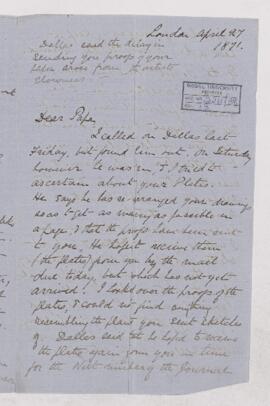 London April 27
1871.
Dallas said the delay in
sending you proofs of your
plates arose from the artist's
slowness
McGILL UNIVERSITY
ARCHIVES
Dear Papa,
I called on Dallas last
Friday, but found him out. On Saturday
however he was in, & I tried to
ascertain about your Plates.
He says he has re-arranged your drawings
so as to get as many as possible in
a page, & that the proofs have been sent
to you. He hoped to receive them
(the plates) from you by the mail
due today, but which has not yet
arrived. I looked over the proofs of the
plates, & could not find anything
resembling the plant you sent sketches
of. Dallas said that he hoped to receive
the plates again from you in time
for the Next number of the Journal